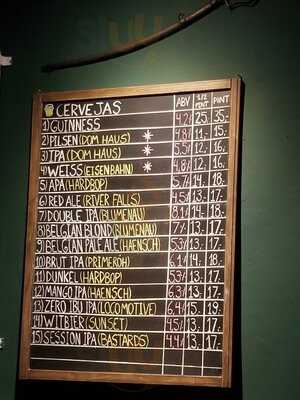 CERVEJAS ABV 1/2 PINT PINT
1) GUINNESS 4.2 25.- 35.-
2) PILSEN (DOM HAUS) * 4.8 11.- 15.-
3) IPA (DOM HAUS) * 5.5 12.- 16.-
4) WEISS (EISENBAHN) * 4.8 12.- 16.-
5) APA (HARDBOP) 5.7 14.- 18.-
6) RED ALE (RIVER FALLS) 4.5 13.- 17.-
7) DOUBLE IPA (BLUMENAU) 8.1 14.- 18.-
8) BELGIAN BLOND (BLUMENAU) 13.- 17.-
9) BELGIAN PALE ALE (HAENSCH) 5.3 13.- 17.-
10) BRUT IPA (PRIMERÖH) 6.1 14.- 18.-
11) DUNKEL (HARDBOP) 5.3 13.- 17.-
12) MANGO IPA (HAENSCH) 6.3 13.- 17.-
13) ZERO IBU IPA (LOCOMOTIVE) 6.4 15.- 19.-
14) WITBIER (SUNSET) 4.5 13.- 17.-
15) SESSION IPA (BASTARDS) 4.4 13.- 17.-